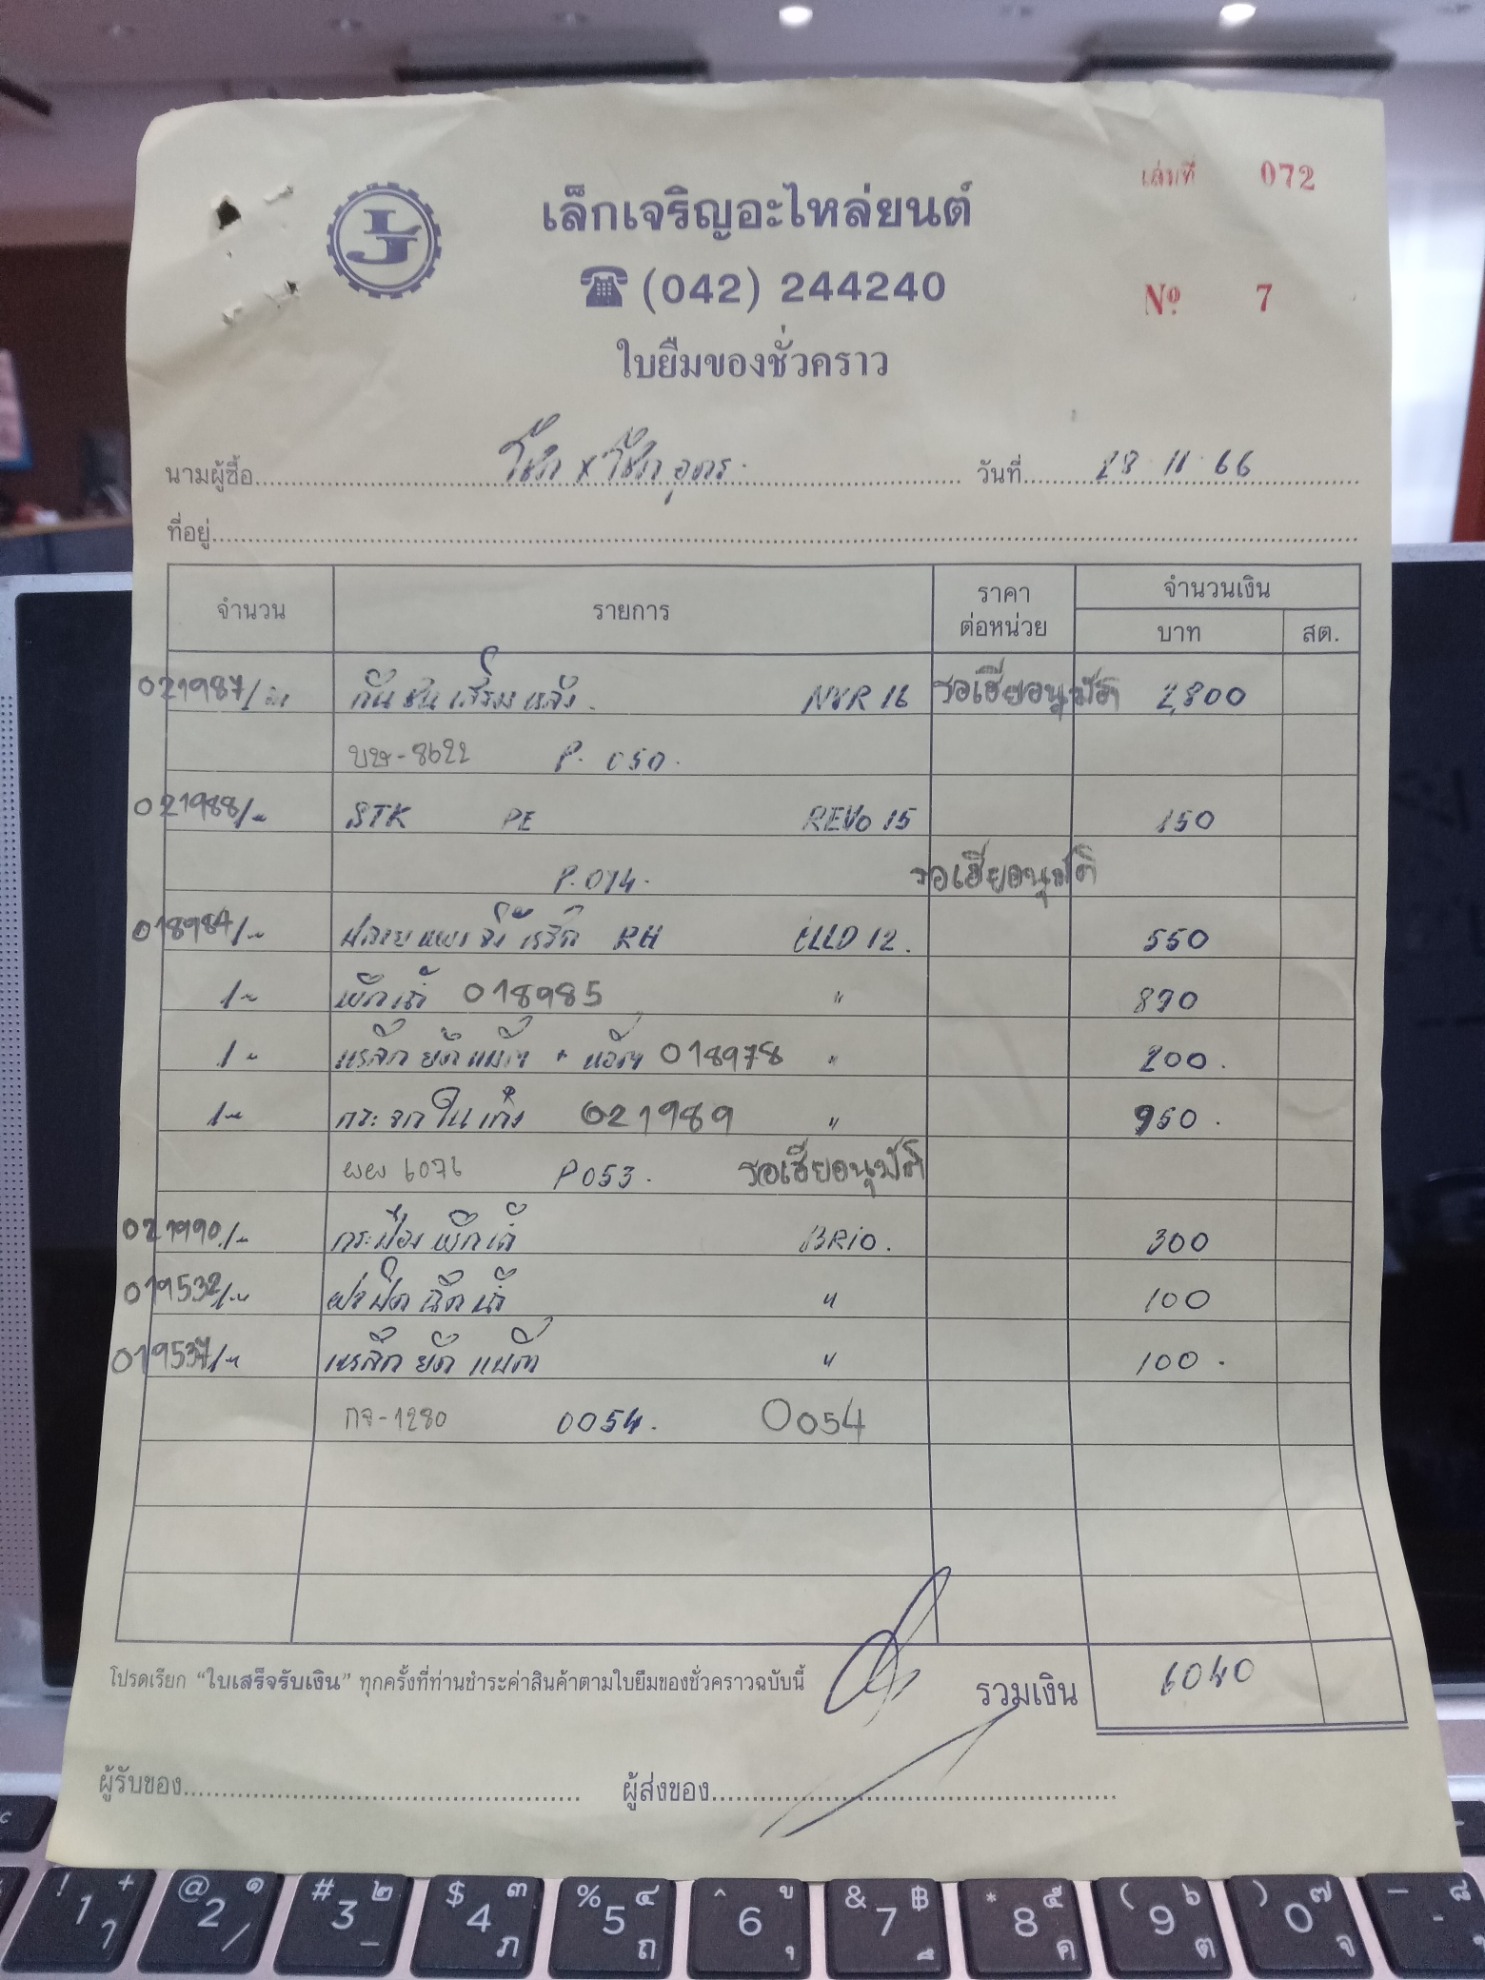 เล่มที่ 072
LJ
เล็กเจริญอะไหล่ยนต์
(042) 244240
Nº 7
ใบยืมของชั่วคราว
นามผู้ซื้อ โชค x โชค อุดร วันที่ 28 11 66
ที่อยู่
จำนวน รายการ ราคาต่อหน่วย จำนวนเงิน
บาท สต.
021987/ กันชนเสริมหลัง NVR 16 รอเฮียอนุมัติ 2,800
บษ-8622 P. 050.
021988/ STK PE REVO 15 150
P.074. รอเฮียอนุมัติ
018984/ RH 12. 550
1 018985 " 890
1 เหล็กยึด 018978 " 200.
1 กระจกในเก๋ง 021989 " 950.
ผผ 6076 P053. รอเฮียอนุมัติ
021990/ กระป๋องพักน้ำ BRIO. 300
019532/ ฝาปิดฉีดน้ำ " 100
019537/ เหล็กยึดแบต " 100.
กจ-1280 0054. 0054
โปรดเรียก “ใบเสร็จรับเงิน” ทุกครั้งที่ท่านชำระค่าสินค้าตามใบยืมของชั่วคราวฉบับนี้ รวมเงิน 6040
ผู้รับของ ผู้ส่งของ
! 1 + ๅ
@ 2 ๑ /
# 3 ๒ _
$ 4 ๓ ภ
% 5 ๔ ถ
^ 6 ู ุ
& 7 ฿ ึ
* 8 ๕ ค
( 9 ๖ ต
) 0 ๗ จ